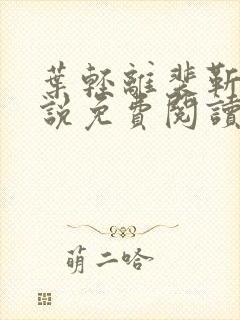 葉輕離裴靳
說免費閱讀
萌二哈